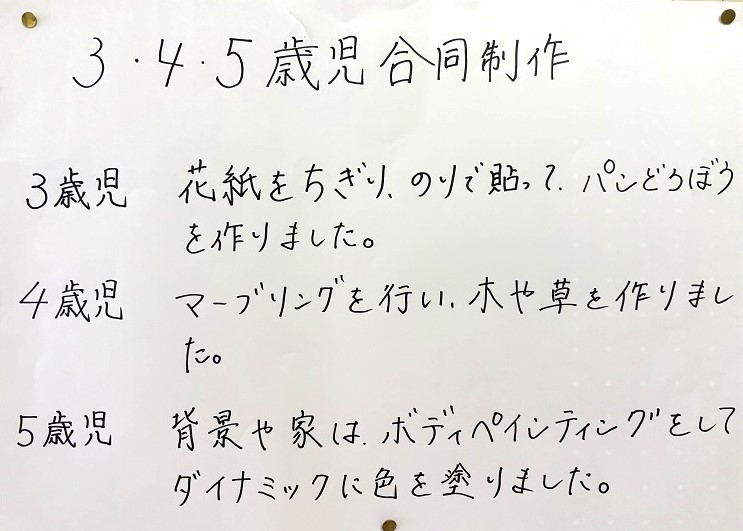 3・4・5歳児合同制作
3歳児 花紙をちぎり、のりで貼って、パンどろぼう
を作りました。
4歳児 マーブリングを行い、木や草を作りまし
た。
5歳児 背景や家は、ボディペインティングをして
ダイナミックに色を塗りました。